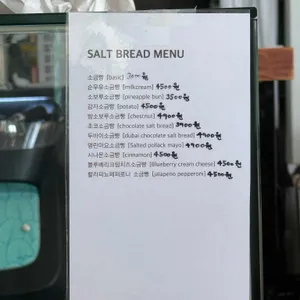 SALT BREAD MENU
소금빵 [basic] 3000원
순우유소금빵 [milkcream] 4500원
소보루소금빵 [pineapple bun] 3500원
감자소금빵 [potato] 4500원
밤소보루소금빵 [chestnut] 4900원
초코소금빵 [chocolate salt bread] 3900원
두바이소금빵 [dubai chocolate salt bread] 4900원
명란마요소금빵 [Salted pollack mayo] 4900원
시나몬소금빵 [cinnamon] 4500원
블루베리크림치즈소금빵 [Blueberry cream cheese] 4500원
할라피뇨페퍼로니 소금빵 [jalapeno pepperoni] 4500원